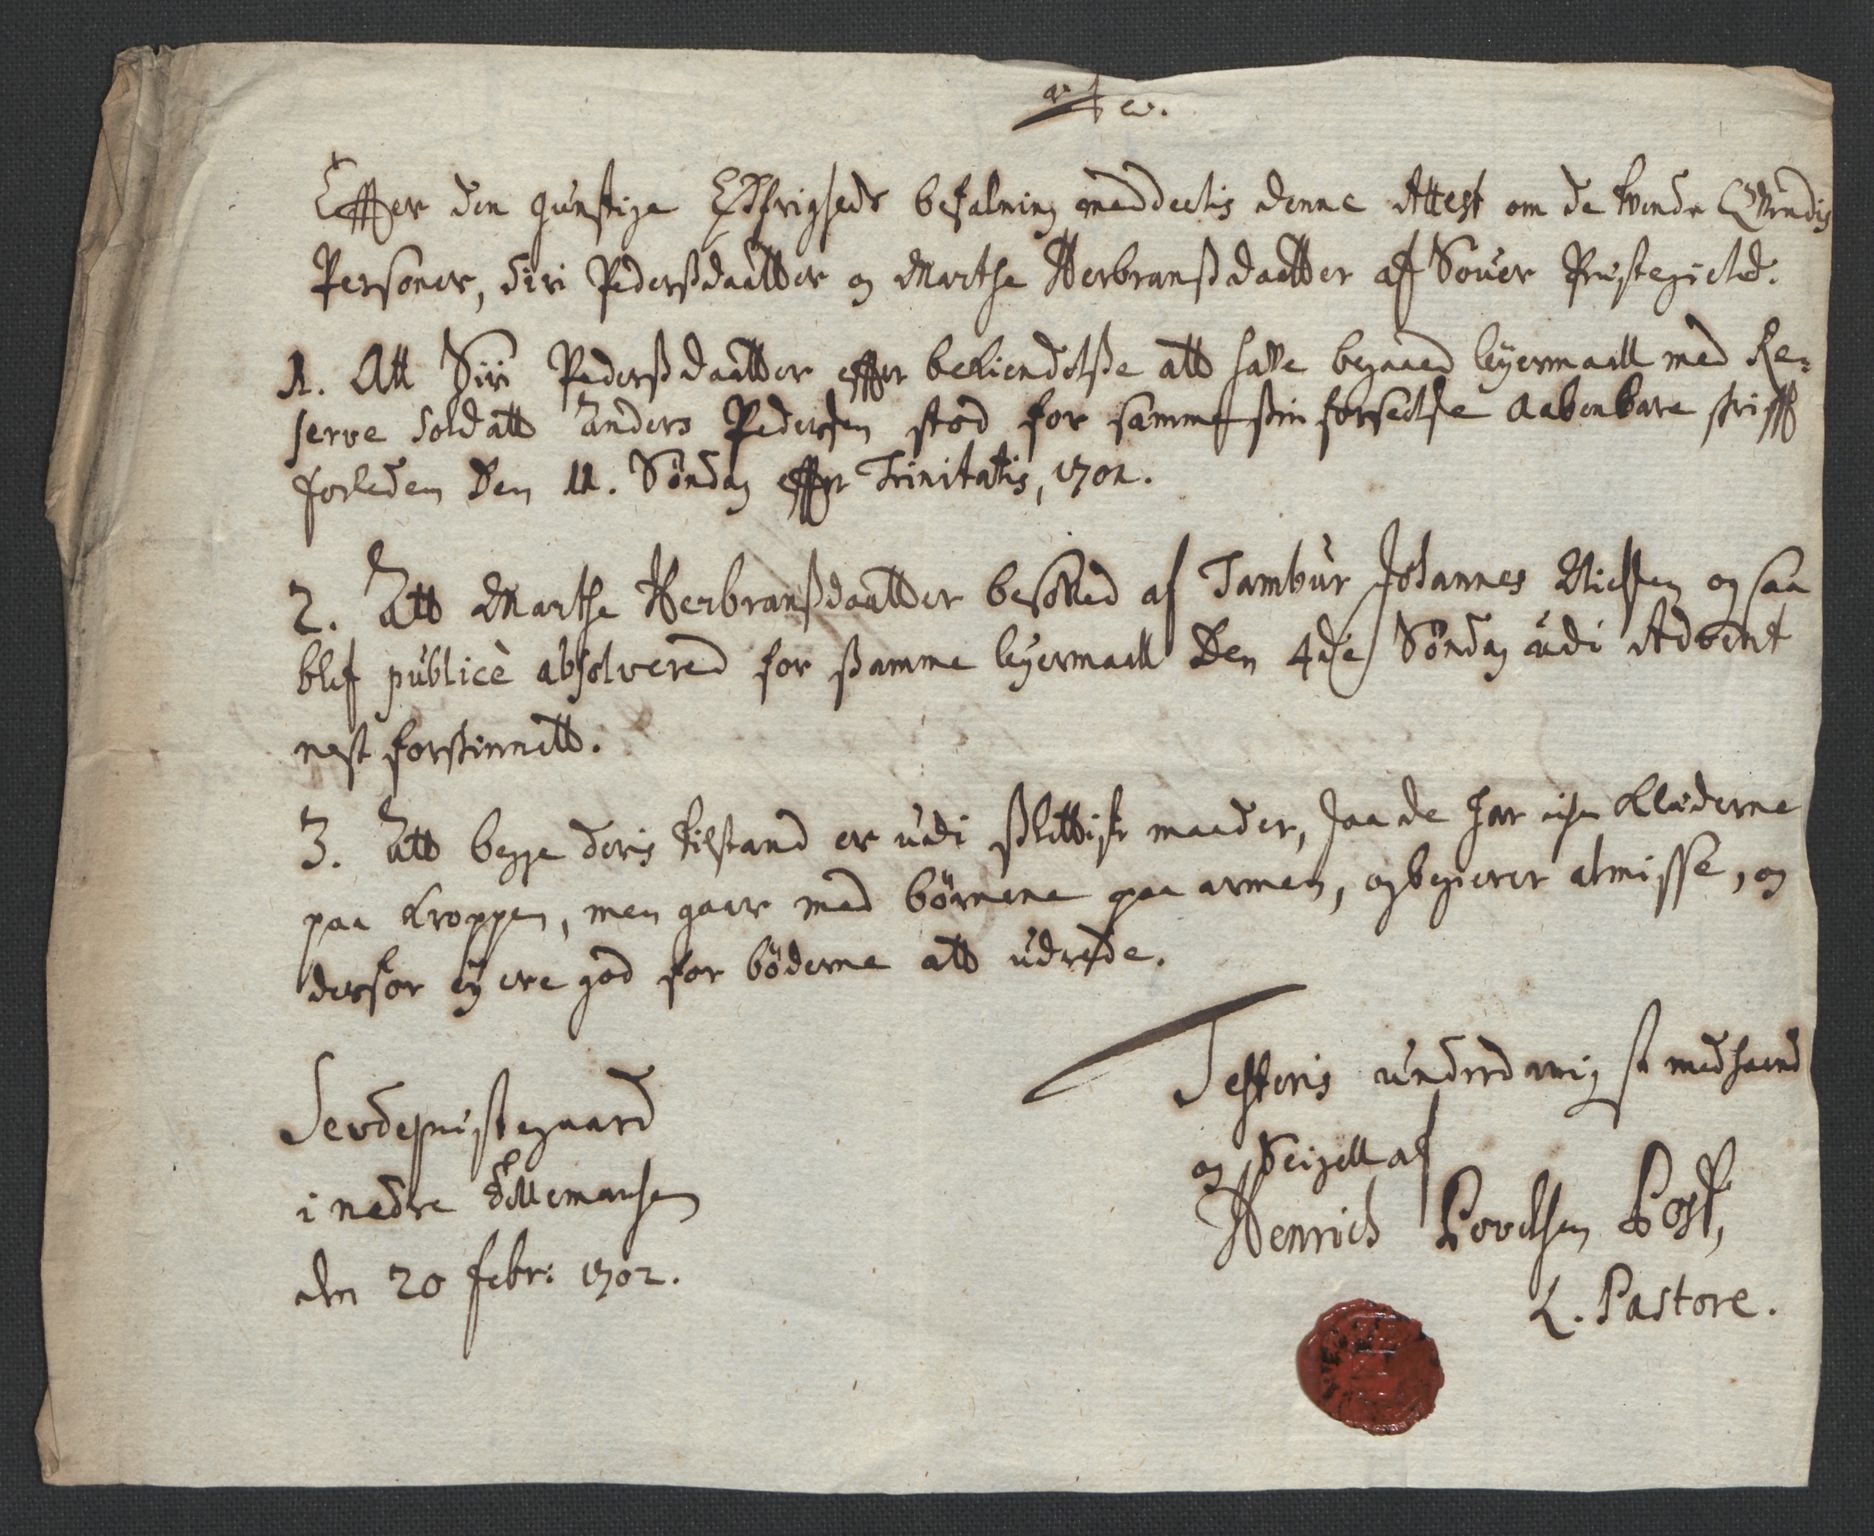 Effter den gunstige Øffrigheds befalning meddeelis denne Attest om de tvende Qvindis
Personer, Siri Pederßdaatter og Marthe Herbranßdaatter af Souer Præstegield.
1. Att Siri Pederßdaatter effter bekiendelße att have begaaed leyermaall med Re-
serve Soldatt Anders Pedersen stod for samme sin forseelse aabenbare skrifft
forleden Den 11. Søndag effter Trinitatis, 1701.
2. Att Marthe Herbranßdaatter besofved af Tambùr Johannes Nielsen og saa
blef pùblicè absolvered for ßamme leyermaall Den 4de Søndag udi Advent
nest forskinnett.
3. Att begge deris tilstand er udi ßlettiste maader, Jaa de har iche Klæderne
paa Kroppen, men gaar med børnene paa armen, og begierer almisse, og
derfor ey ere god for bøderne att udrede.
Testeris underdanigst med haand
og Seigell af
Henrich Povelsen Post,
L. Pastore.
præstegaard
i nedre Tellemarken
den 20 febr: 1702.